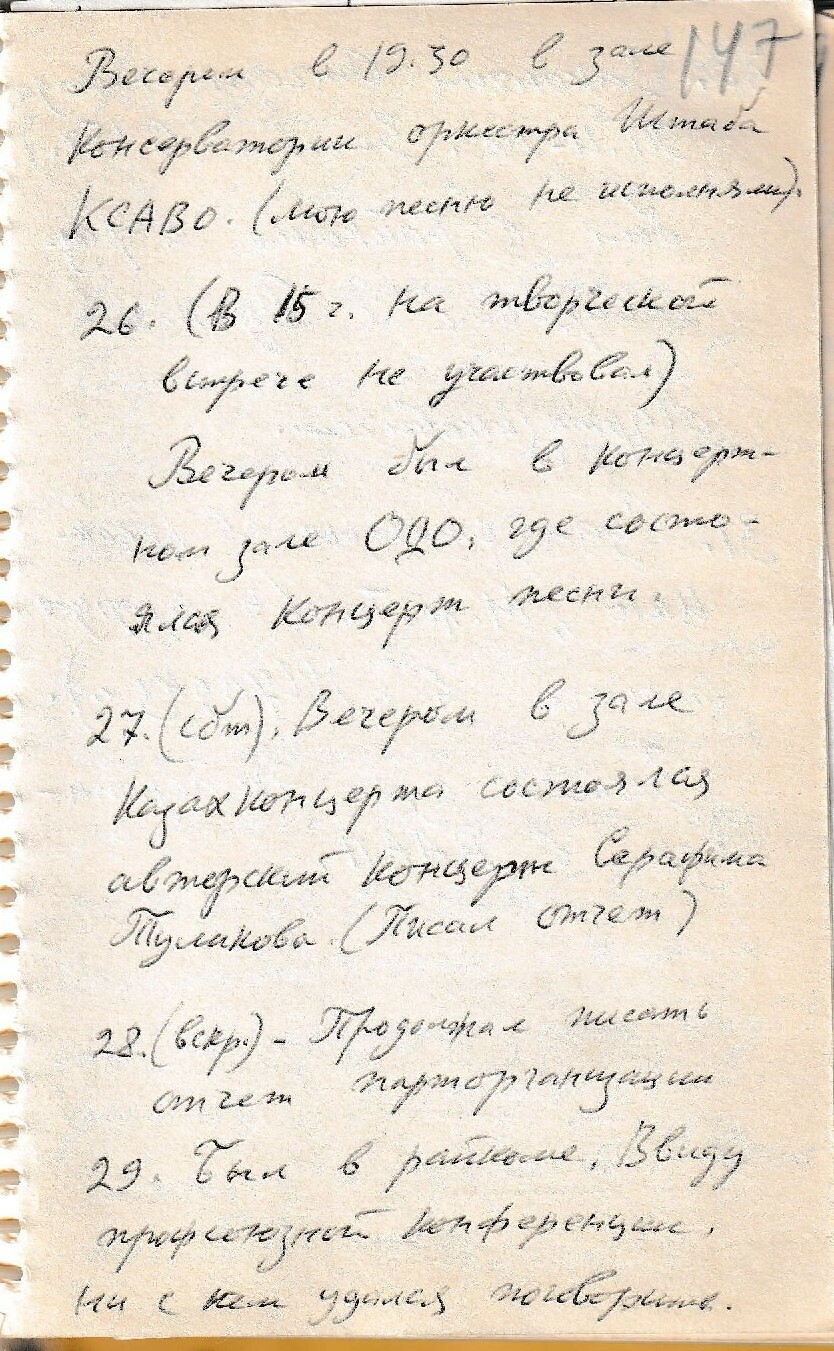 147
Вечером в 19.30 в зале
Консерватории оркестра Штаба
КСАВО. (мою песню не исполняли).
26. (В 15 г. на творческой
встрече не участвовал)
Вечером был в концерт-
ном зале ОДО, где состо-
ялся концерт песни.
27. (сбт). Вечером в зале
Казахконцерта состоялся
авторский концерт Серафима
Туликова. (Писал отчет)
28. (вскр.) - Продолжал писать
отчет парторганизации
29. Был в райкоме. Ввиду
профсоюзной конференции,
ни с кем удался поговорить.